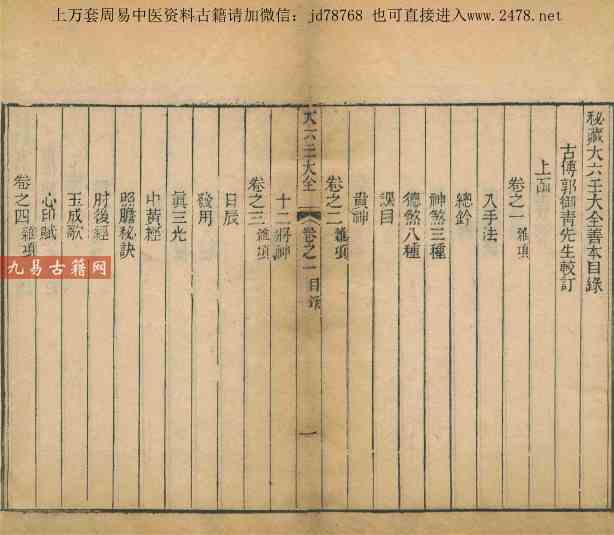 上万套周易中医资料古籍请加微信：jd78768 也可直接进入www.2478.net
秘藏大六壬大全善本目錄
古傳郭御青先生較訂
上函
卷之一 雜項
入手法
總鈐
神煞三種
德煞八種
課目
卷之二 雜項
貴神
大六壬大全 卷之一 目錄 一
十二將神
卷之三 雜項
日辰
發用
眞三光
中黃經
照膽秘訣
肘後經
玉成歌
心印賦
卷之四 雜項
九易古籍网